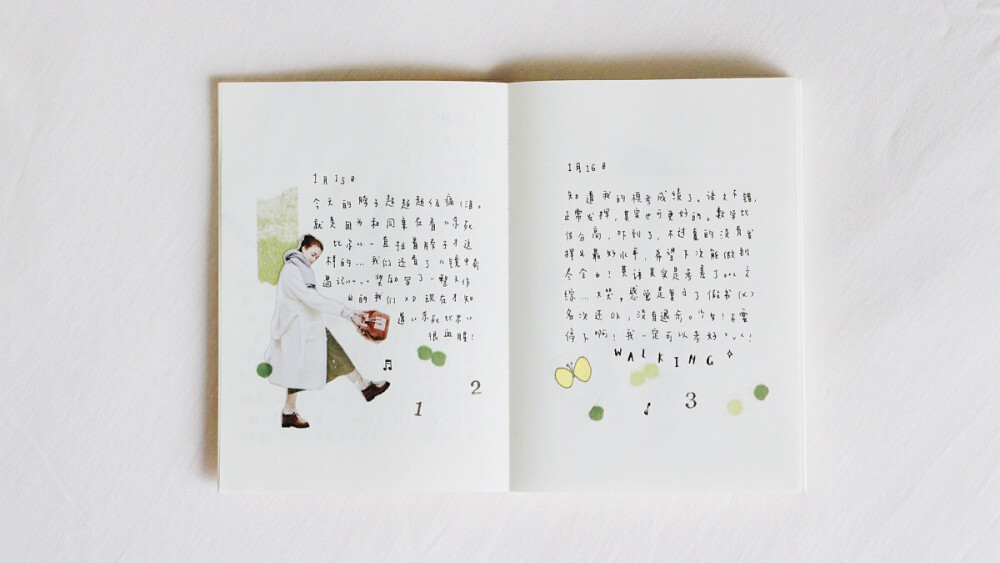 1月15日
今天的脖子超超超级痛（泪。
就是因为和同桌在看《杀死
比尔》一直扭着脖子才这
样的…我们还看了《镜中奇
遇记》
的我们XD现在才知
道《杀死比尔》
很血腥！
1
2
1月16日
知道我的模考成绩了。语文不错，
正常发挥，其实也可更好的。数学比
估分高，吓到了，不过真的没有发
挥出最好水平，希望下次能做到
尽全力！英语其实是考差了 文
综…大哭。感觉是复习了假书（X）
名次还OK，没有退步。 不要
停下啊！我一定可以考好 ！
WALKING
3